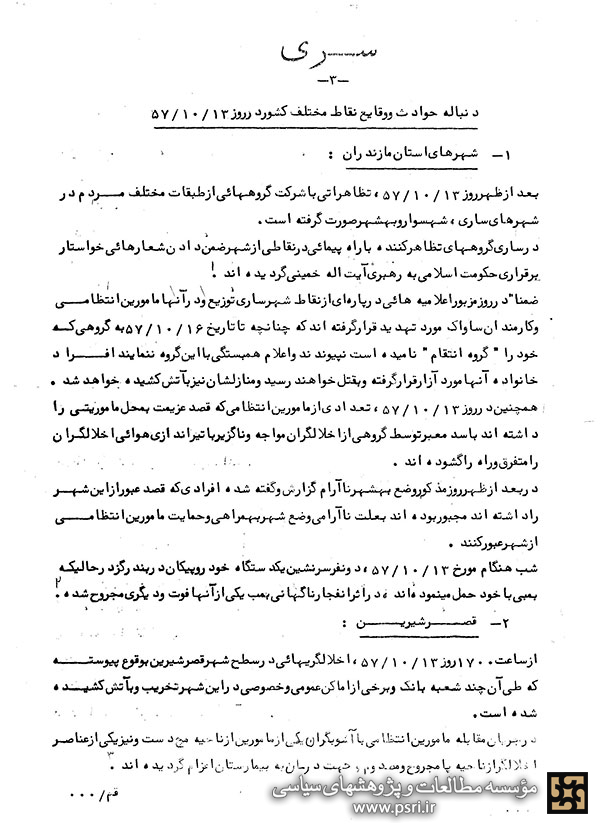 سری
-۳-
دنباله حوادث ووقایع نقاط مختلف کشوردرروز ۵۷/۱۰/۱۳
۱- شهرهای استان مازندران :
بعد ازظهرروز ۵۷/۱۰/۱۳ ، تظاهراتی با شرکت گروههائی ازطبقات مختلف مردم در
شهرهای ساری ، شهسواروبهشهرصورت گرفته است .
درساری گروههای تظاهرکننده باراه پیمائی درنقاطی ازشهرضمن دادن شعارهائی خواستار
برقراری حکومت اسلامی به رهبری آیت اله خمینی گردیده اند !
ضمنا"درروزمزبوراعلامیه هائی درپاره ای ازنقاط شهرساری توزیع ودرآنها مامورین انتظامی
وکارمندان ساواک مورد تهدید قرارگرفته اند که چنانچه تاتاریخ ۵۷/۱۰/۱۶ به گروهی که
خود را " گروه انتقام " نامیده است نپیوندند واعلام همبستگی بااین گروه ننمایند افراد
خانواده آنها مورد آزارقرارگرفته وبقتل خواهند رسید ومنازلشان نیزبآتش کشیده خواهد شد .
همچنین درروز ۵۷/۱۰/۱۳ ، تعدادی ازمامورین انتظامی که قصد عزیمت بمحل ماموریتی را
داشته اند باسد معبرتوسط گروهی ازاخلالگران مواجه وناگزیرباتیراندازی هوائی اخلالگران
رامتفرق وراه راگشوده اند .
دربعد ازظهرروزمذکوروضع بهشهرناآرام گزارش وگفته شده افرادی که قصد عبورازاین شهر
راداشته اند مجبوربوده اند بعلت ناآرامی وضع شهربهمراهی وحمایت مامورین انتظامی
ازشهرعبورکنند .
شب هنگام مورخ ۵۷/۱۰/۱۳ ، دونفرسرنشین یکدستگاه خودروپیکان دربندرگزدرحالیکه
بمبی باخود حمل مینموده اند دراثرانفجارناگهانی بمب یکی ازآنها فوت ودیگری مجروح شده . ۲
۲- قصرشیرین :
ازساعت ۱۷۰۰ روز ۵۷/۱۰/۱۳ ، اخلالگریهائی درسطح شهرقصرشیرین بوقوع پیوسته
که طی آن چند شعبه بانک وبرخی ازاماکن عمومی وخصوصی دراین شهرتخریب وبآتش کشیده
شده است .
درجریان مقابله مامورین انتظامی باآشوبگران یکی ازمامورین ازناحیه مچ دست ونیزیکی ازعناصر
اخلالگرازناحیه پا مجروح ومصدوم وجهت درمان به بیمارستان اعزام گردیده اند . ۳
قم/۰۰۰
مؤسسه مطالعات و پژوهشهای سیاسی
www.psri.ir